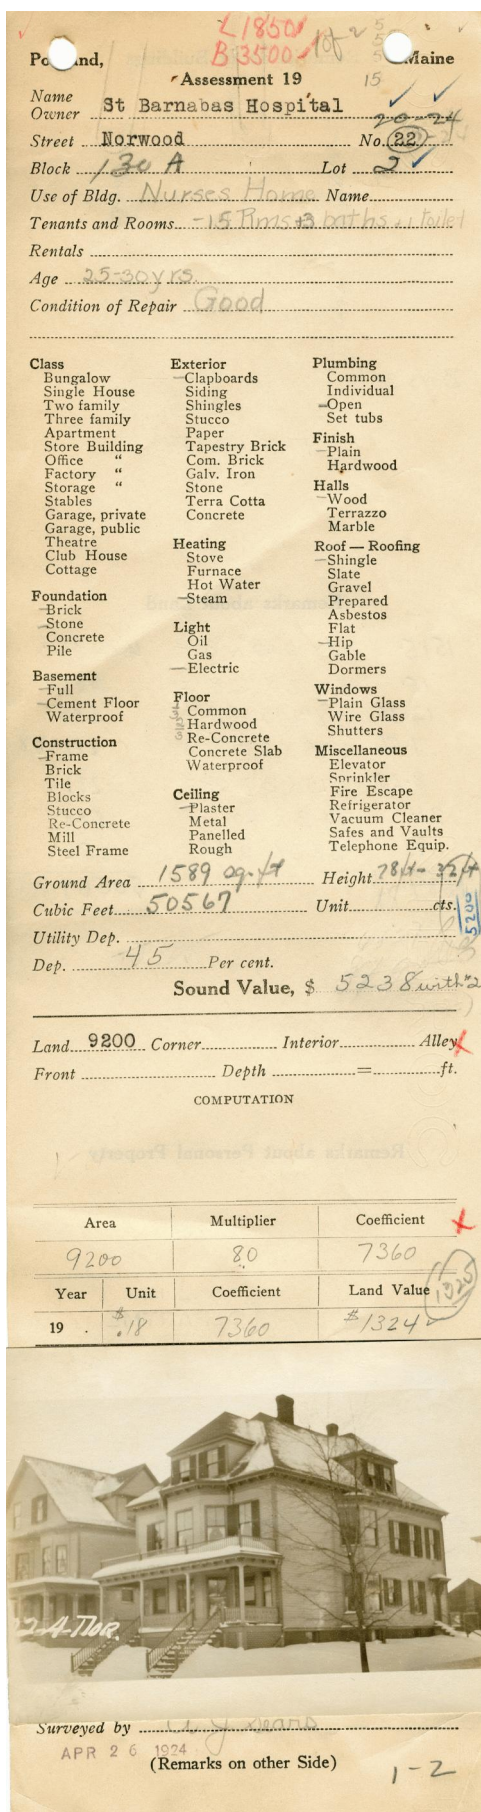 L 1850
B 3500
1 of 2
Maine
Assessment 19
15
Name
Owner St Barnabas Hospital
20-24
Street Norwood No. 22
Block 130 A Lot 2
Use of Bldg. Nurses Home Name
Tenants and Rooms -15 Rms +3 baths +1 toilet
Rentals
Age 25-30 yrs.
Condition of Repair Good
Class
Bungalow
Single House
Two family
Three family
Apartment
Store Building
Office "
Factory "
Storage "
Stables
Garage, private
Garage, public
Theatre
Club House
Cottage
Foundation
Brick
Stone
Concrete
Pile
Basement
Full
Cement Floor
Waterproof
Construction
Frame
Brick
Tile
Blocks
Stucco
Re-Concrete
Mill
Steel Frame
Exterior
Clapboards
Siding
Shingles
Stucco
Paper
Tapestry Brick
Com. Brick
Galv. Iron
Stone
Terra Cotta
Concrete
Heating
Stove
Furnace
Hot Water
Steam
Light
Oil
Gas
Electric
Floor
Common
Hardwood
Re-Concrete
Concrete Slab
Waterproof
Ceiling
Plaster
Metal
Panelled
Rough
Plumbing
Common
Individual
Open
Set tubs
Finish
Plain
Hardwood
Halls
Wood
Terrazzo
Marble
Roof — Roofing
Shingle
Slate
Gravel
Prepared
Asbestos
Flat
Hip
Gable
Dormers
Windows
Plain Glass
Wire Glass
Shutters
Miscellaneous
Elevator
Sprinkler
Fire Escape
Refrigerator
Vacuum Cleaner
Safes and Vaults
Telephone Equip.
Ground Area 1589 sq. ft Height 28 ft - 32 ft
Cubic Feet 50567 Unit cts.
5200
Utility Dep.
Dep. 45 Per cent.
Sound Value, $ 5238 with #2
Land 9200 Corner Interior Alley
Front Depth = ft.
COMPUTATION
Area Multiplier Coefficient
9200 80 7360
Year Unit Coefficient Land Value
1325
19 . $.18 7360 $1324
22-A-Nor.
Surveyed by
APR 26 1924
(Remarks on other Side)
1-2